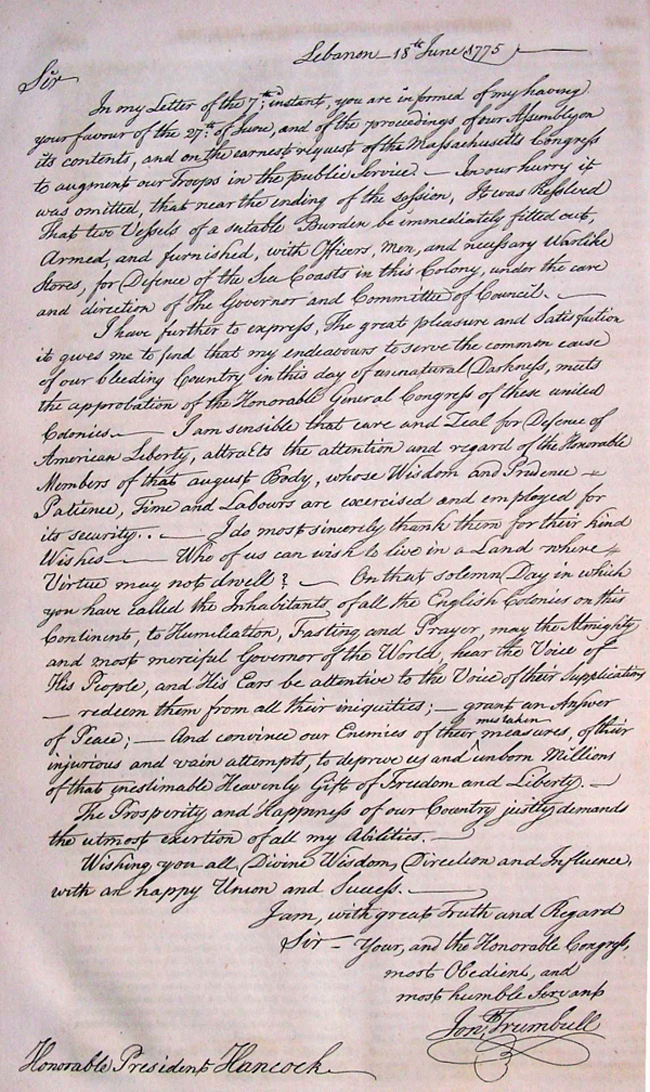 Lebanon 18th June 1775
Sir
In my Letter of the 7th instant, you are informed of my having
your favour of the 27th of June, and of the proceedings of our Assembly on
its contents, and on the earnest request of the Massachusetts Congress
to augment our Troops in the public Service. — In our hurry it
was omitted, that near the ending of the Session, It was Resolved
That two Vessels of a suitable Burden be immediately fitted out,
Armed, and furnished, with Officers, Men, and necessary Warlike
Stores, for Defence of the Sea Coasts in this Colony, under the care
and direction of The Governor and Committee of Council. —
I have further to express, The great pleasure and Satisfaction
it gives me to find that my endeavours to serve the common cause
of our bleeding Country in this day of unnatural Darkness, meets
the approbation of the Honorable General Congress of these united
Colonies. — I am sensible that care and Zeal for Defence of
American Liberty, attracts the attention and regard of the Honorable
Members of that august Body, whose Wisdom and Prudence —
Patience, Time and Labours are exercised and employed for
its security. . — I do most sincerely thank them for their kind
Wishes — Who of us can wish to live in a Land where
Virtue may not dwell? — On that solemn Day in which
you have called the Inhabitants of all the English Colonies on this
Continent, to Humiliation, Fasting and Prayer, may the Almighty
and most merciful Governor of the World, hear the Voice of
His People, and His Ears be attentive to the Voice of their Supplications
— redeem them from all their iniquities; — grant an Answer
of Peace; — And convince our Enemies of their mistaken measures, of their
injurious and vain attempts, to deprive us and unborn Millions
of that inestimable Heavenly Gift of Freedom and Liberty. —
The Prosperity and Happiness of our Country justly demands
the utmost exertion of all my Abilities. —
Wishing you all Divine Wisdom, Direction and Influence,
with an happy Union and Success. —
I am, with great Truth and Regard
Sir — Your, and the Honorable Congress,
most Obedient, and
most humble Servant
Jonth Trumbull
Honorable President Hancock